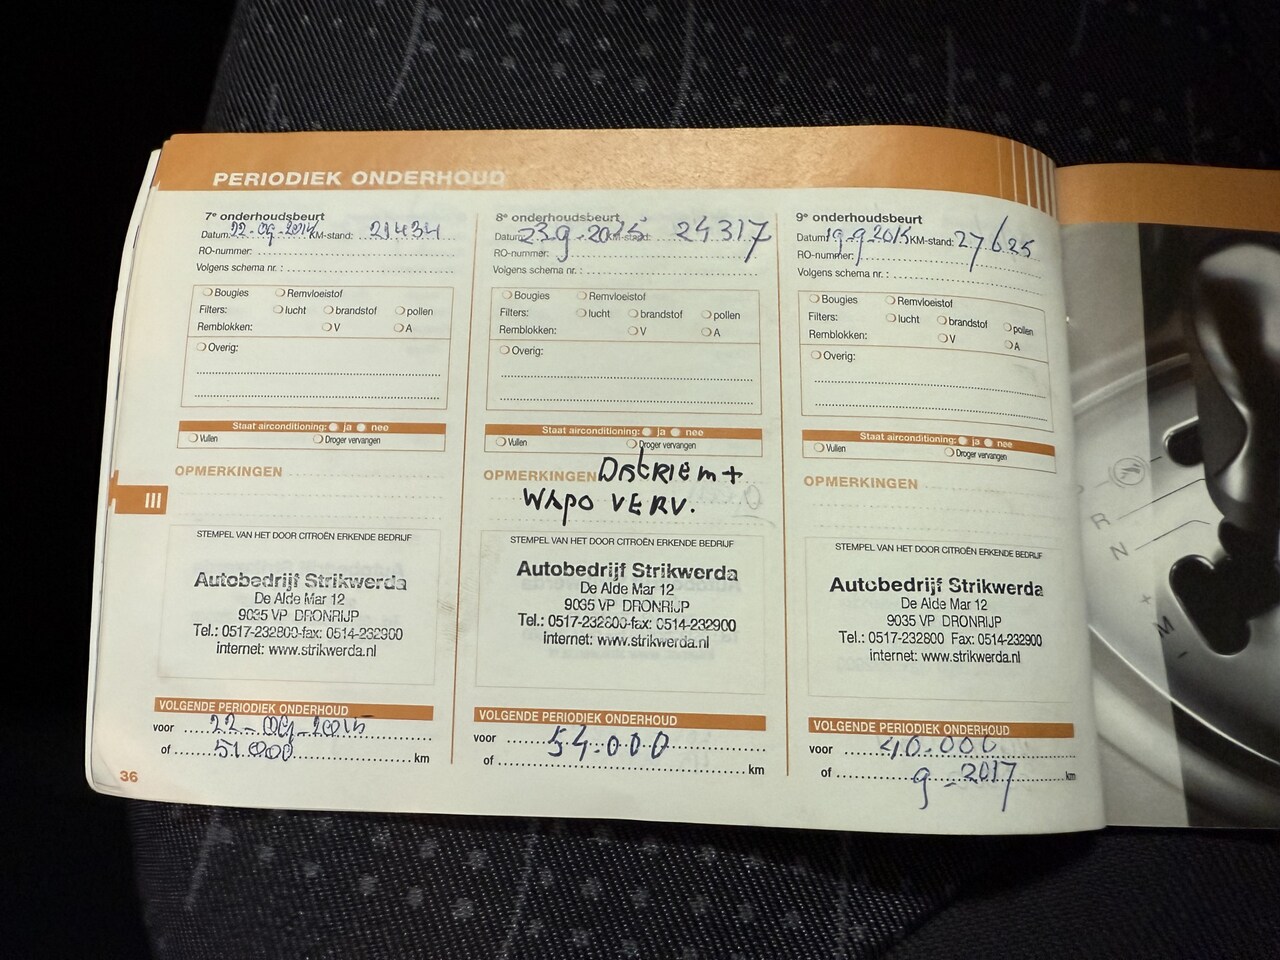 PERIODIEK ONDERHOUD
7e onderhoudsbeurt
Datum: 22-09-2014 KM-stand: 21434
RO-nummer:
Volgens schema nr. :
Bougies Remvloeistof
Filters: lucht brandstof pollen
Remblokken: V A
Overig:
Staat airconditioning: ja nee
Vullen Droger vervangen
OPMERKINGEN
STEMPEL VAN HET DOOR CITROËN ERKENDE BEDRIJF
Autobedrijf Strikwerda
De Alde Mar 12
9035 VP DRONRIJP
Tel.: 0517-232800-fax: 0514-232900
internet: www.strikwerda.nl
VOLGENDE PERIODIEK ONDERHOUD
voor 22-09-2015
of 51.000 km
8e onderhoudsbeurt
Datum: 23-9-2015 KM-stand: 24317
RO-nummer:
Volgens schema nr. :
Bougies Remvloeistof
Filters: lucht brandstof pollen
Remblokken: V A
Overig:
Staat airconditioning: ja nee
Vullen Droger vervangen
OPMERKINGEN DISTRIEM +
WAPO VERV.
STEMPEL VAN HET DOOR CITROËN ERKENDE BEDRIJF
Autobedrijf Strikwerda
De Alde Mar 12
9035 VP DRONRIJP
Tel.: 0517-232800-fax: 0514-232900
internet: www.strikwerda.nl
VOLGENDE PERIODIEK ONDERHOUD
voor 54.000
of km
9e onderhoudsbeurt
Datum: KM-stand: 27625
RO-nummer:
Volgens schema nr. :
Bougies Remvloeistof
Filters: lucht brandstof pollen
Remblokken: V A
Overig:
Staat airconditioning: ja nee
Vullen Droger vervangen
OPMERKINGEN
STEMPEL VAN HET DOOR CITROËN ERKENDE BEDRIJF
Autobedrijf Strikwerda
De Alde Mar 12
9035 VP DRONRIJP
Tel.: 0517-232800 Fax: 0514-232900
internet: www.strikwerda.nl
VOLGENDE PERIODIEK ONDERHOUD
voor 40.000
of 9-2017 km
III
36
R
N
+
M
-